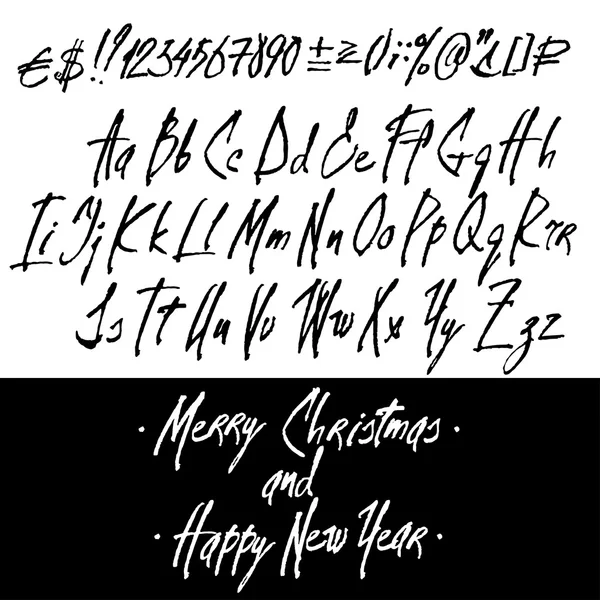 €$!?1234567890±=≥()i::%@"&[]₽
Aa Bb Cc Dd Ee Ff Gg Hh
Ii Jj Kk Ll Mm Nn Oo Pp Qq Rr R
Ss Tt Uu Vv Ww Xx Yy Zz z
· Merry Christmas ·
and
· Happy New Year ·